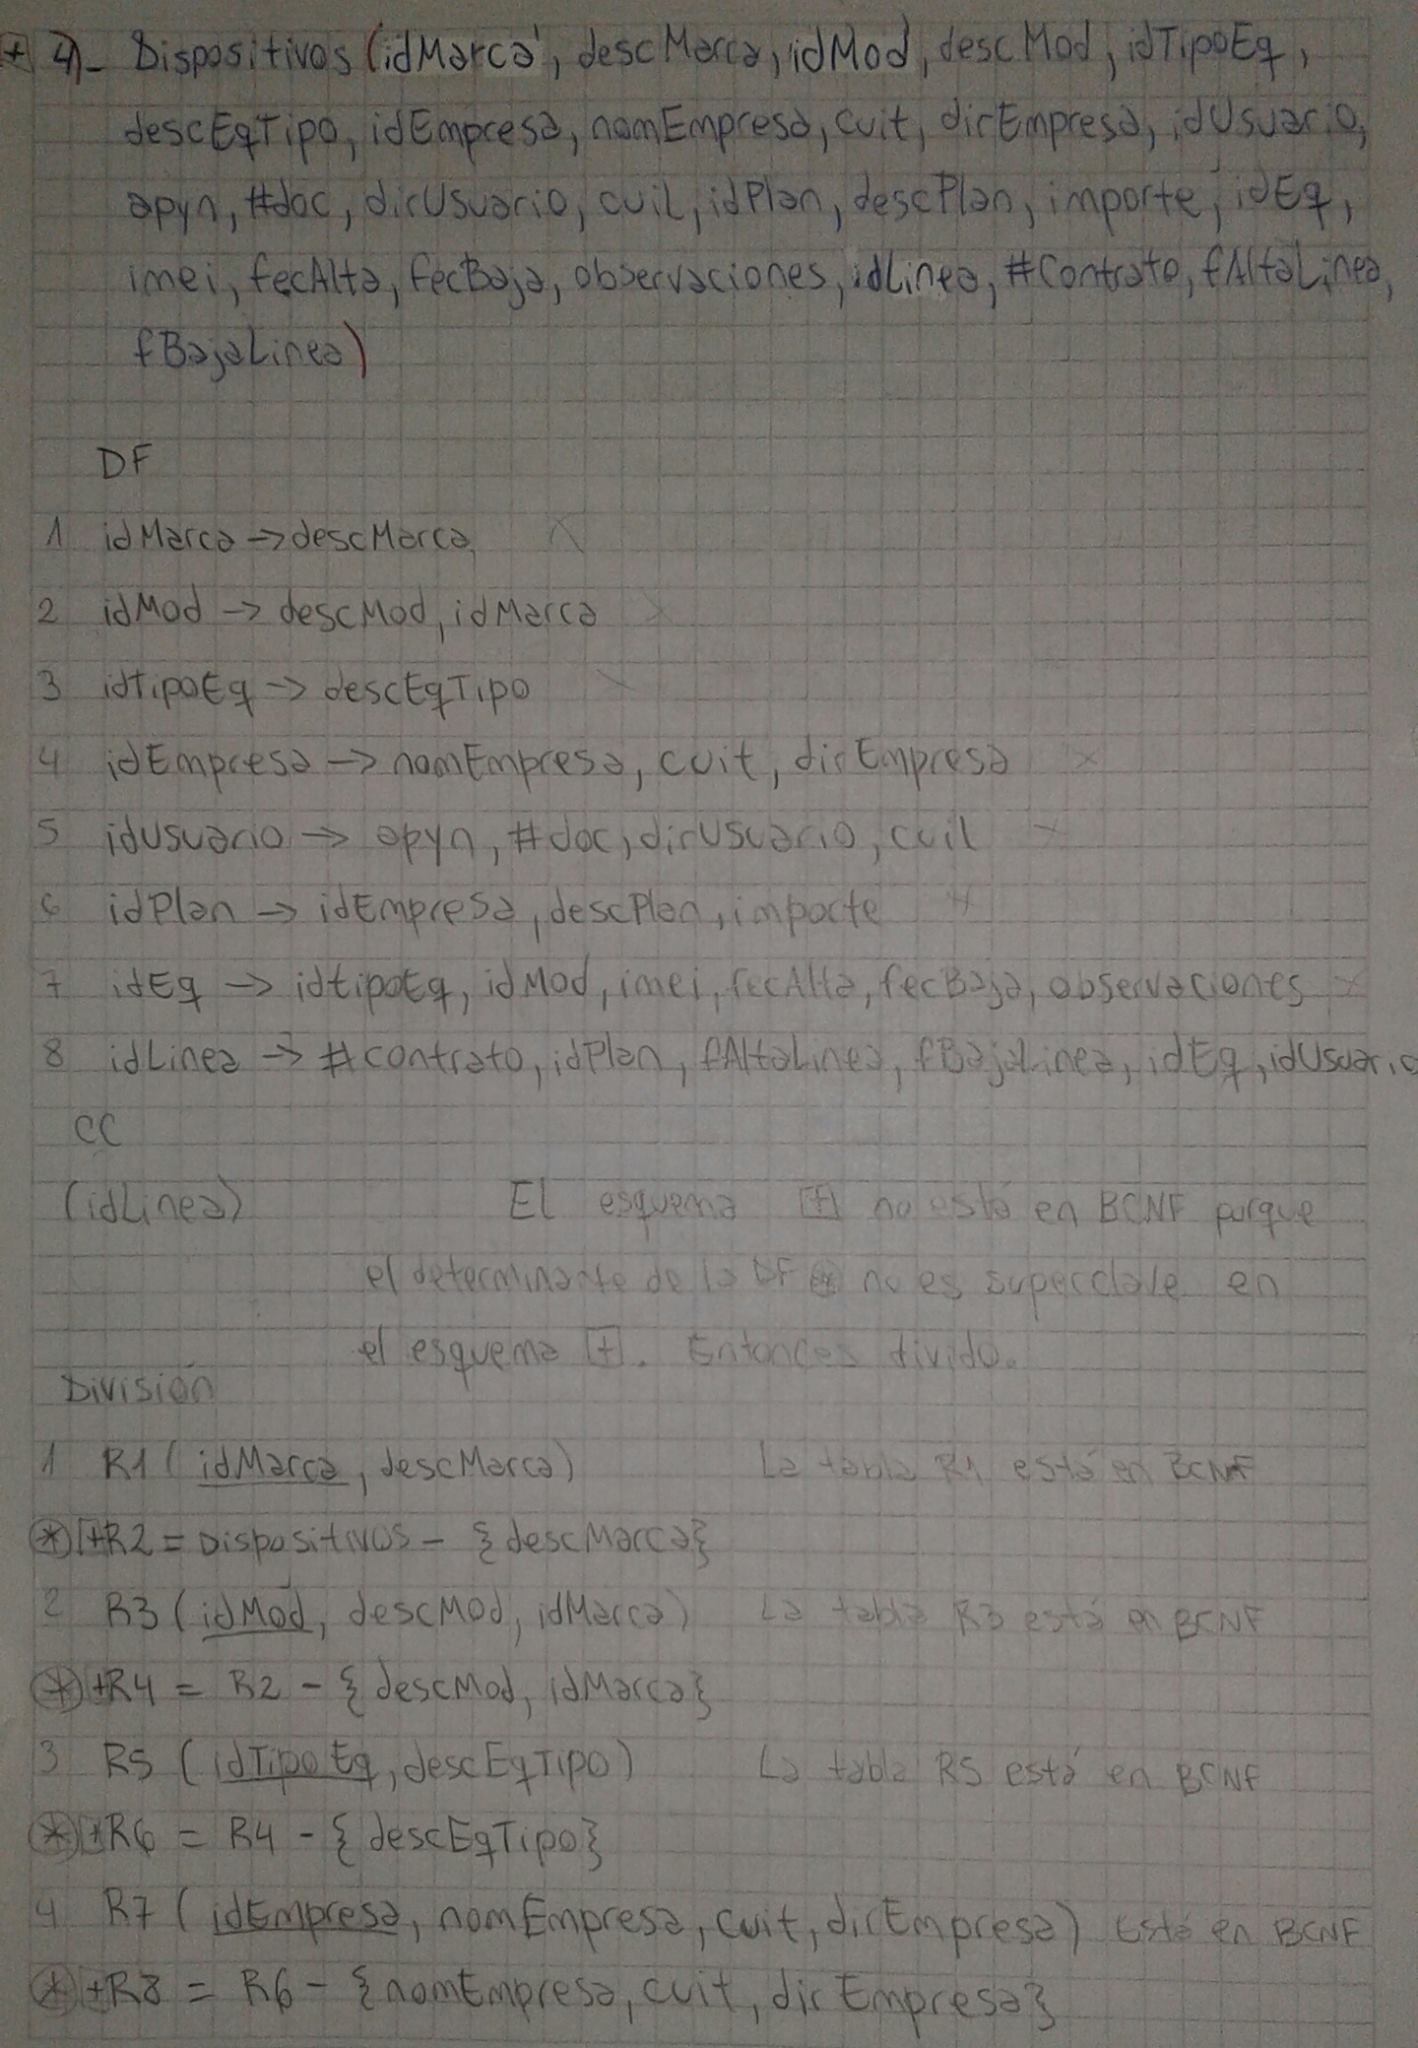 + 4)- Dispositivos (idMarca, descMarca, idMod, descMod, idTipoEq,
descEqTipo, idEmpresa, nomEmpresa, cuit, dirEmpresa, idUsuario,
apyn, #doc, dirUsuario, cuil, idPlan, descPlan, importe, idEq,
imei, fecAlta, fecBaja, observaciones, idLinea, #Contrato, fAltaLinea,
fBajaLinea)
DF
1 idMarca -> descMarca x
2 idMod -> descMod, idMarca x
3 idtipoEq -> descEqTipo x
4 idEmpresa -> nomEmpresa, cuit, dirEmpresa x
5 idUsuario -> apyn, #doc, dirUsuario, cuil x
6 idPlan -> idEmpresa, descPlan, importe x
7 idEq -> idtipoEq, idMod, imei, fecAlta, fecBaja, observaciones x
8 idLinea -> #contrato, idPlan, fAltaLinea, fBajaLinea, idEq, idUsuario
CC
(idLinea) El esquema [+] no está en BCNF porque
el determinante de la DF * no es superclave en
el esquema [+]. Entonces divido.
División
1 R1 (idMarca, descMarca) La tabla R1 está en BCNF
* + R2 = Dispositivos - {descMarca}
2 R3 (idMod, descMod, idMarca) La tabla R3 está en BCNF
* + R4 = R2 - {descMod, idMarca}
3 R5 (idTipoEq, descEqTipo) La tabla R5 está en BCNF
* + R6 = R4 - {descEqTipo}
4 R7 (idEmpresa, nomEmpresa, cuit, dirEmpresa) Está en BCNF
* + R8 = R6 - {nomEmpresa, cuit, dirEmpresa}